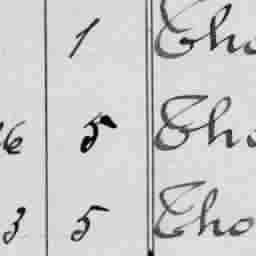 1 Tho
6 5 Tho
3 5 Tho